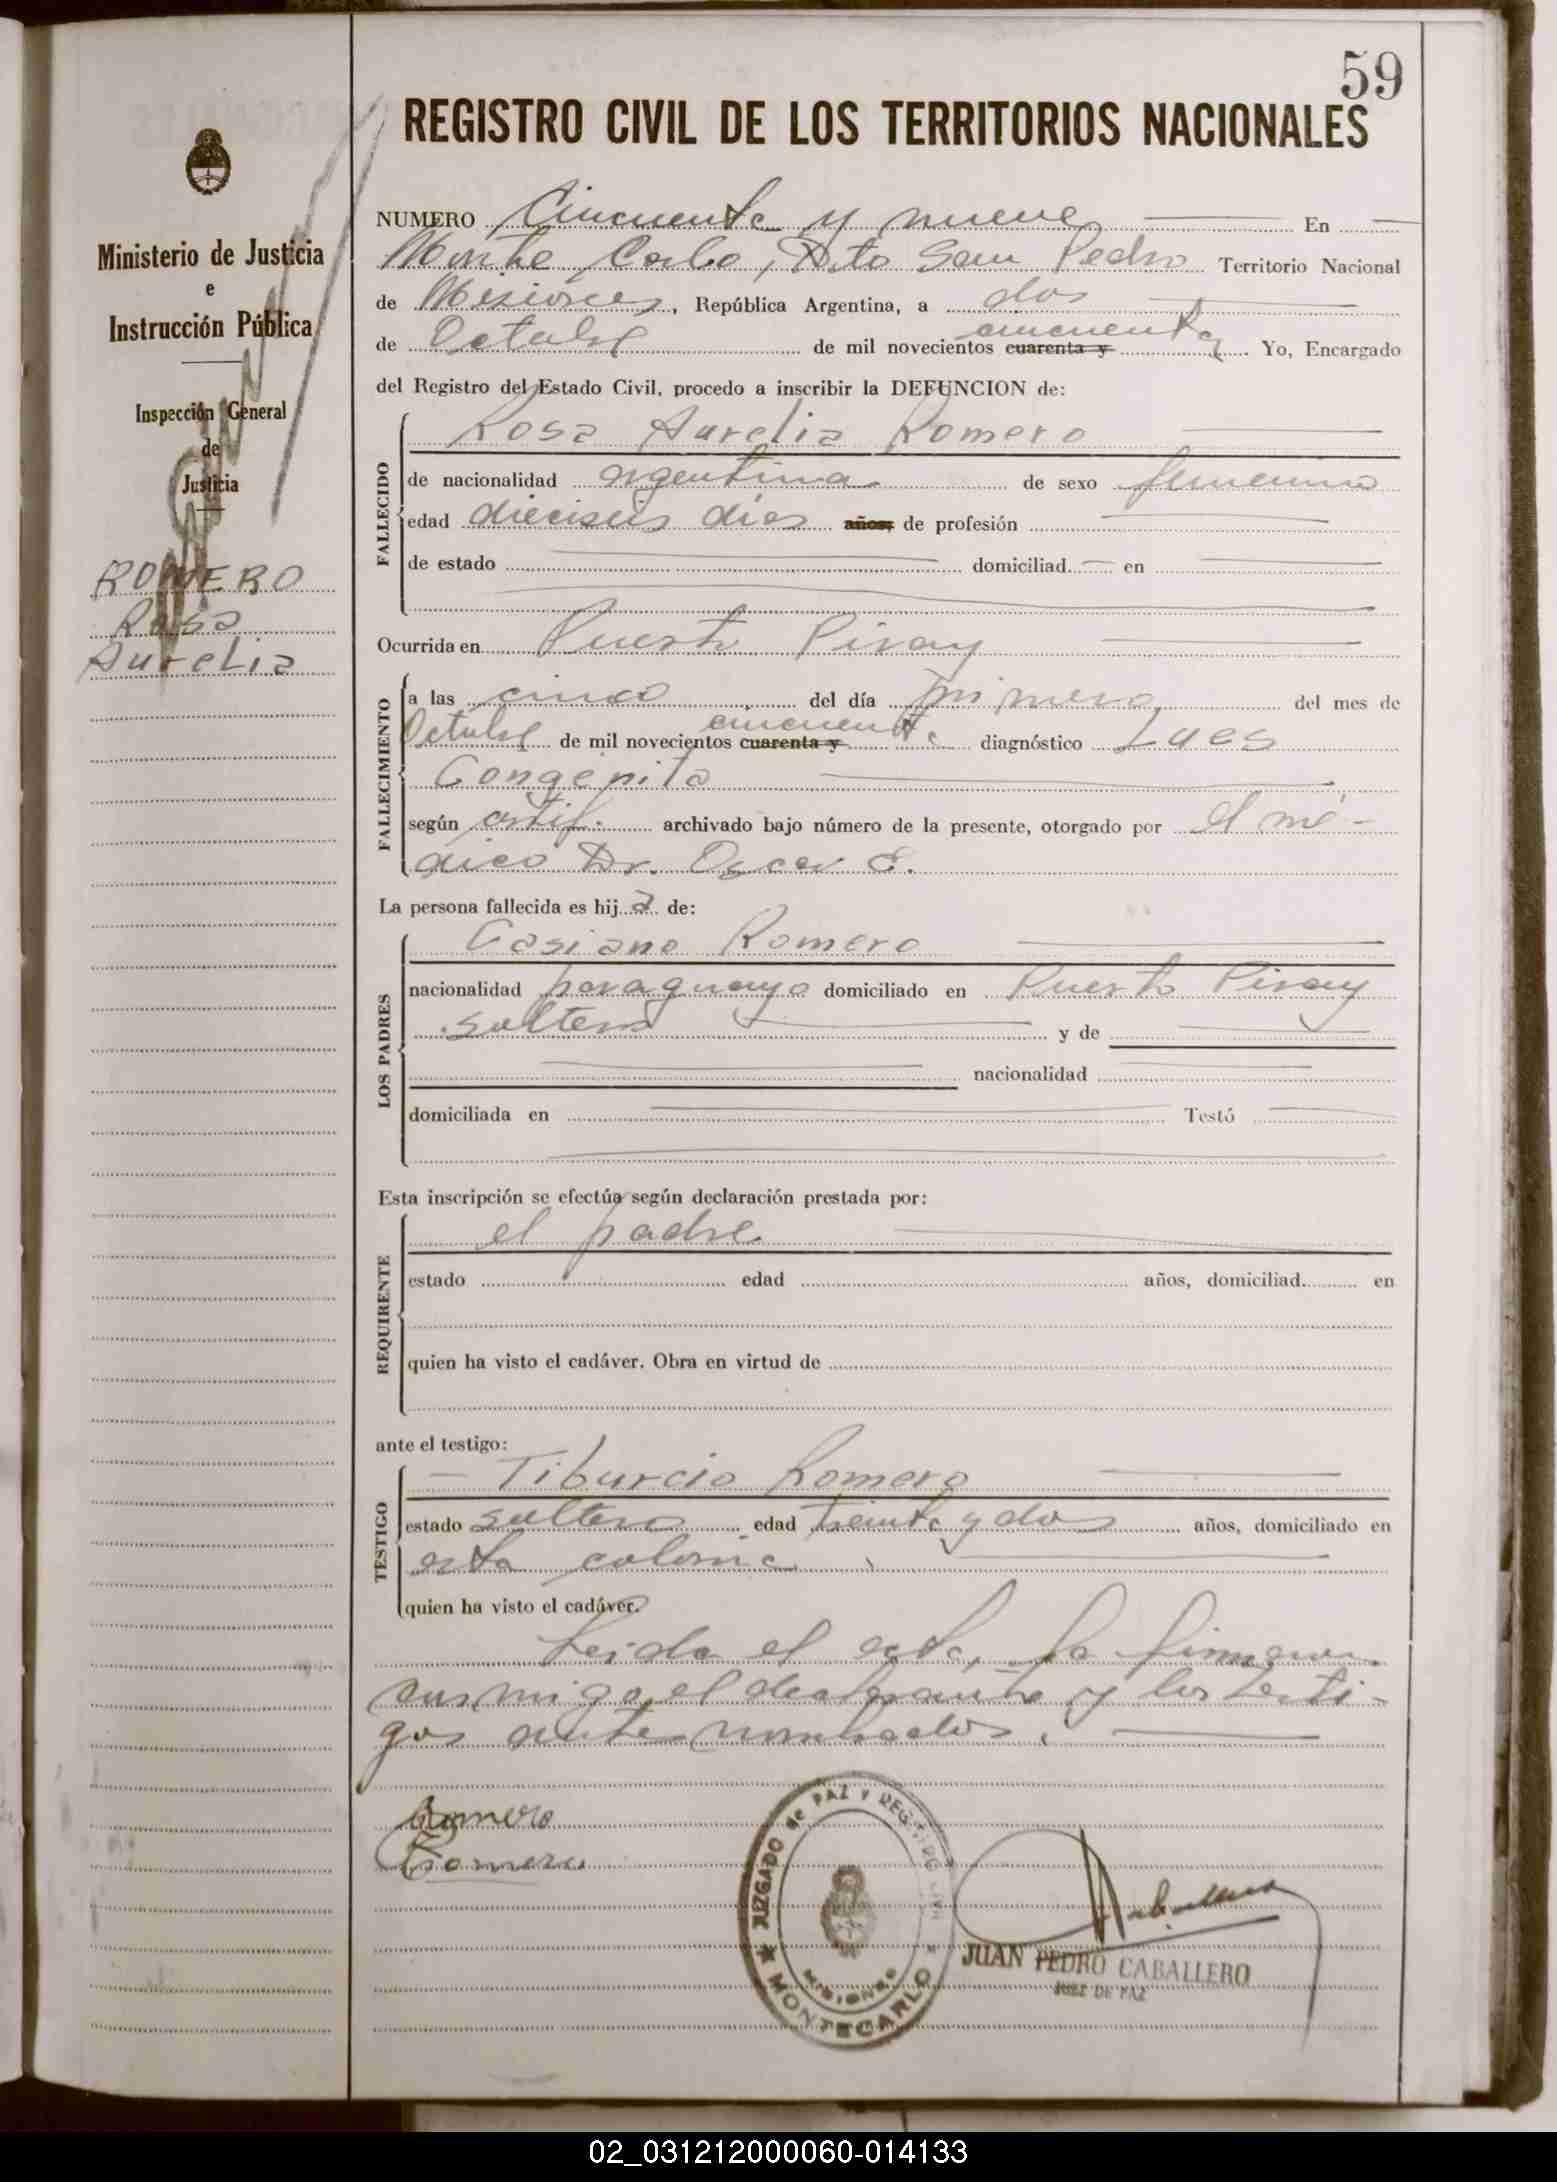 59
REGISTRO CIVIL DE LOS TERRITORIOS NACIONALES
Ministerio de Justicia
e
Instrucción Pública
Inspección General
de
Justicia
ROMERO
Rosa
Aurelia
NUMERO Cincuenta y nueve En
Monte Carlo, Dto San Pedro Territorio Nacional
de Misiones, República Argentina, a dos
de Octubre de mil novecientos cuarenta y cincuenta Yo, Encargado
del Registro del Estado Civil, procedo a inscribir la DEFUNCION de:
FALLECIDO
Rosa Aurelia Romero
de nacionalidad argentina de sexo femenino
edad dieciseis dias años; de profesión
de estado domiciliad en
Ocurrida en Puerto Piray
FALLECIMIENTO
a las cinco del día primero del mes de
Octubre de mil novecientos cuarenta y cincuenta diagnóstico Lues
Congenita
según certif. archivado bajo número de la presente, otorgado por el mé-
dico Dr. Oscar E.
La persona fallecida es hija de:
LOS PADRES
Casiano Romero
nacionalidad paraguayo domiciliado en Puerto Piray
soltero y de
nacionalidad
domiciliada en Testó
Esta inscripción se efectúa según declaración prestada por:
REQUIRENTE
el padre
estado edad años, domiciliad en
quien ha visto el cadáver. Obra en virtud de
ante el testigo:
TESTIGO
Tiburcio Romero
estado soltero edad treinta y dos años, domiciliado en
esta colonia
quien ha visto el cadáver.
Leida el acta, la firmaron
conmigo, el declarante y los testi-
gos antes nombrados.
Romero
Romero
JUZGADO de PAZ Y REGISTRO CIVIL
MISIONES
MONTECARLO
JUAN PEDRO CABALLERO
JUEZ DE PAZ
02_031212000060-014133